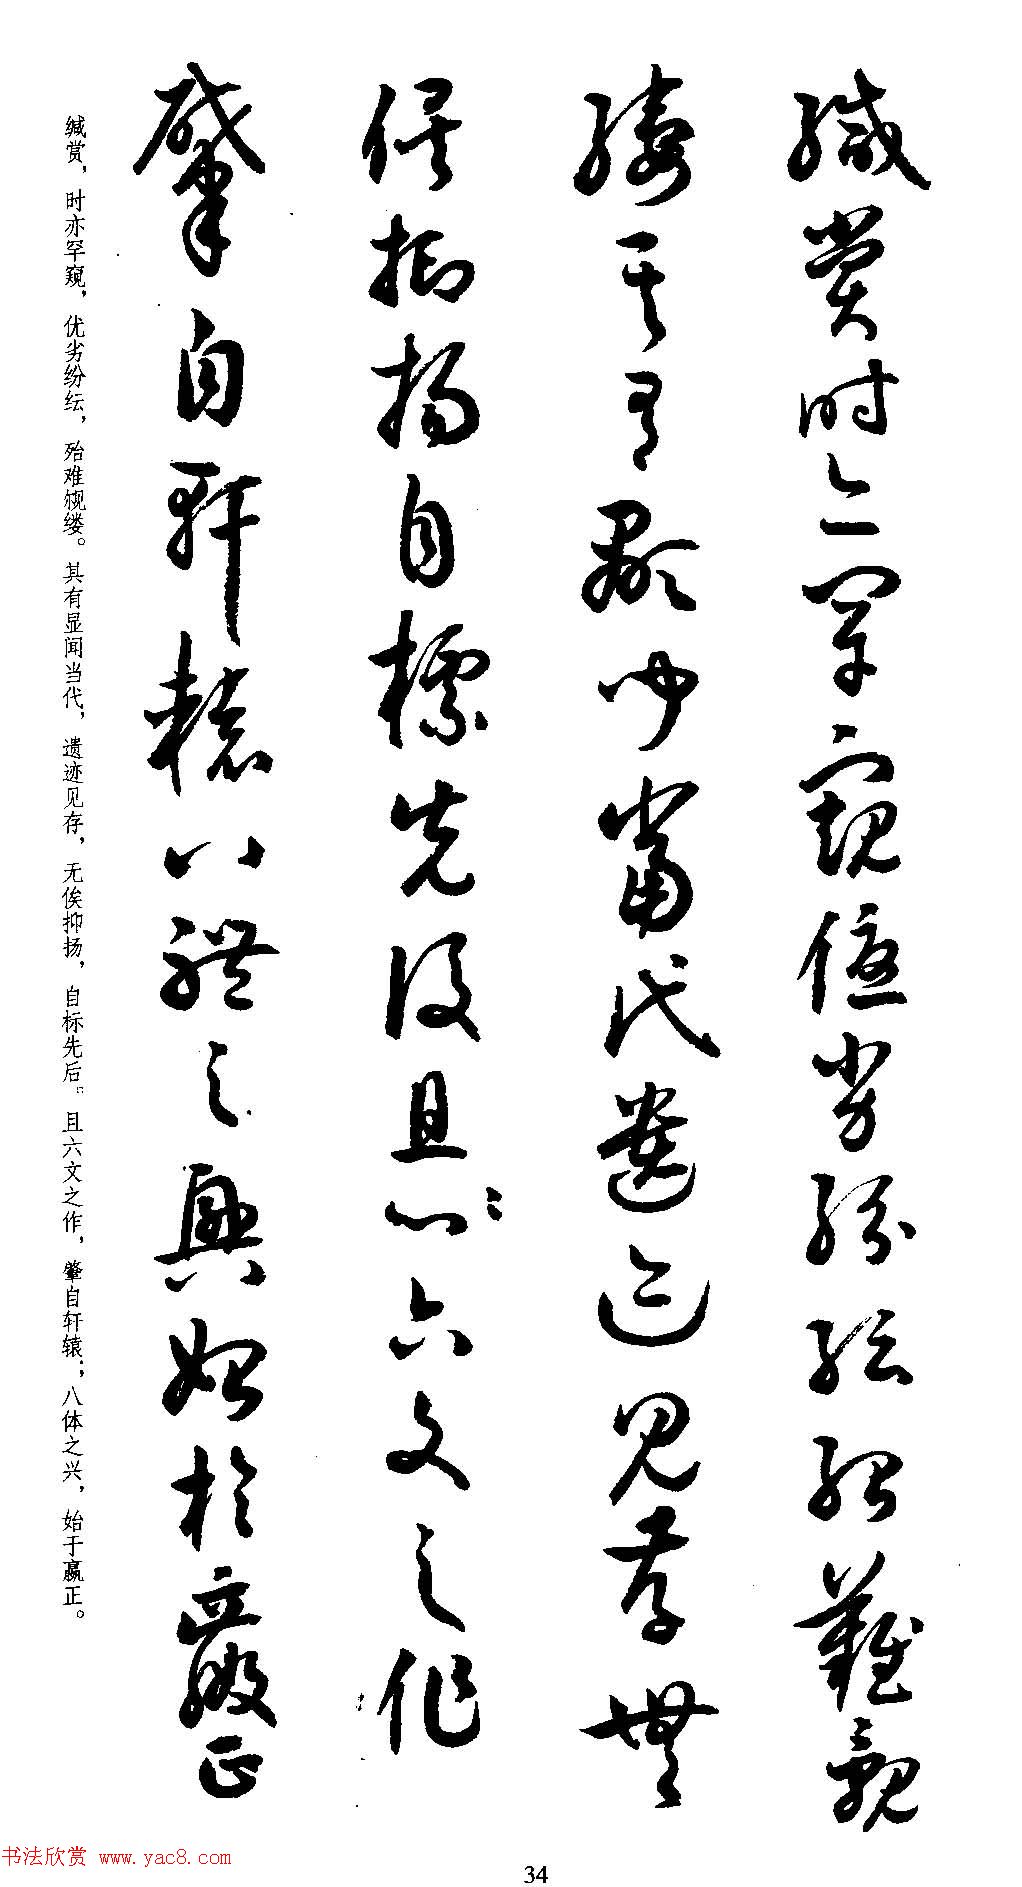 缄賞時亦罕窺優劣紛紜殆難覶
縷其有顯聞當代遺迹見存無
俟抑揚自標先後且六文之作
肇自軒轅八體之興始於嬴正
缄赏，时亦罕窥，优劣纷纭，殆难觇缕。其有显闻当代，遗迹见存，无俟抑扬，自标先后。且六文之作，肇自轩辕；八体之兴，始于嬴正。
书法欣赏 www.yac8.com
34